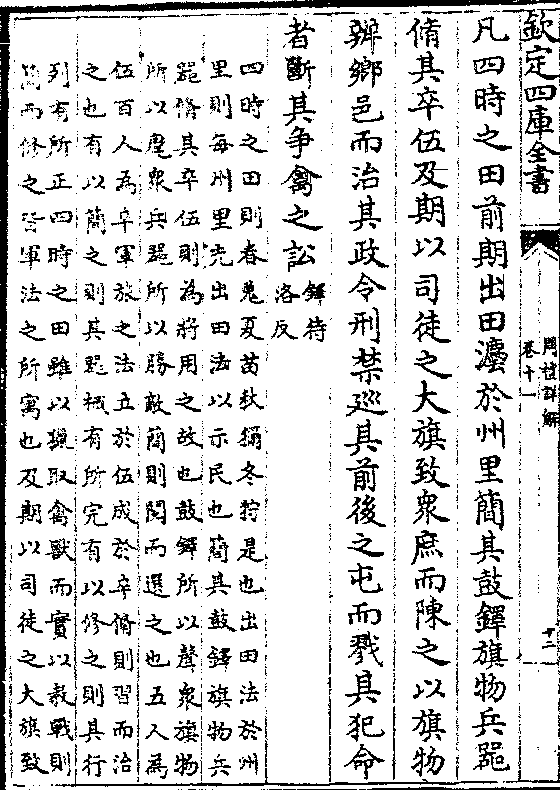 欽定四庫全書
周禮詳解
卷十一
十二
凡四時之田前期出田灋於州里簡其鼓鐸旗物兵器
脩其卒伍及期以司徒之大旗致衆庶而陳之以旗物
辨鄉邑而治其政令刑禁巡其前後之屯而戮其犯命
者斷其争禽之訟
鐸待
洛反
四時之田則春蒐夏苗秋獮冬狩是也出田法於州
里則每州里先出田法以示民也簡其鼓鐸旗物兵
器脩其卒伍則為將用之故也鼓鐸所以聲衆旗物
所以麾衆兵器所以勝敵簡則閱而選之也五人為
伍百人為卒軍旅之法立於伍成於卒脩則習而治
之也有以簡之則其器械有所完有以修之則其行
列有所正四時之田雖以獵取禽獸而實以教戰則
簡而修之皆軍法之所寓也及期以司徒之大旗致